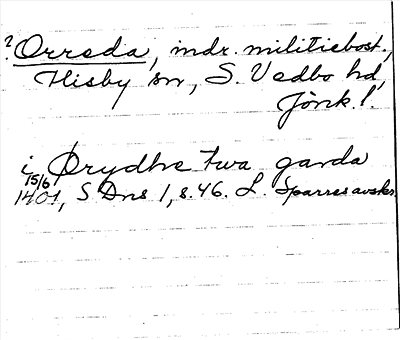 ? Orreda, mdr. militiebost.,
Flisby sn, S. Vedbo hd,
Jönk. l.
i Ørydhe twa garda
15/6 1401, SDns 1, s. 46. L. Sparres avskr.